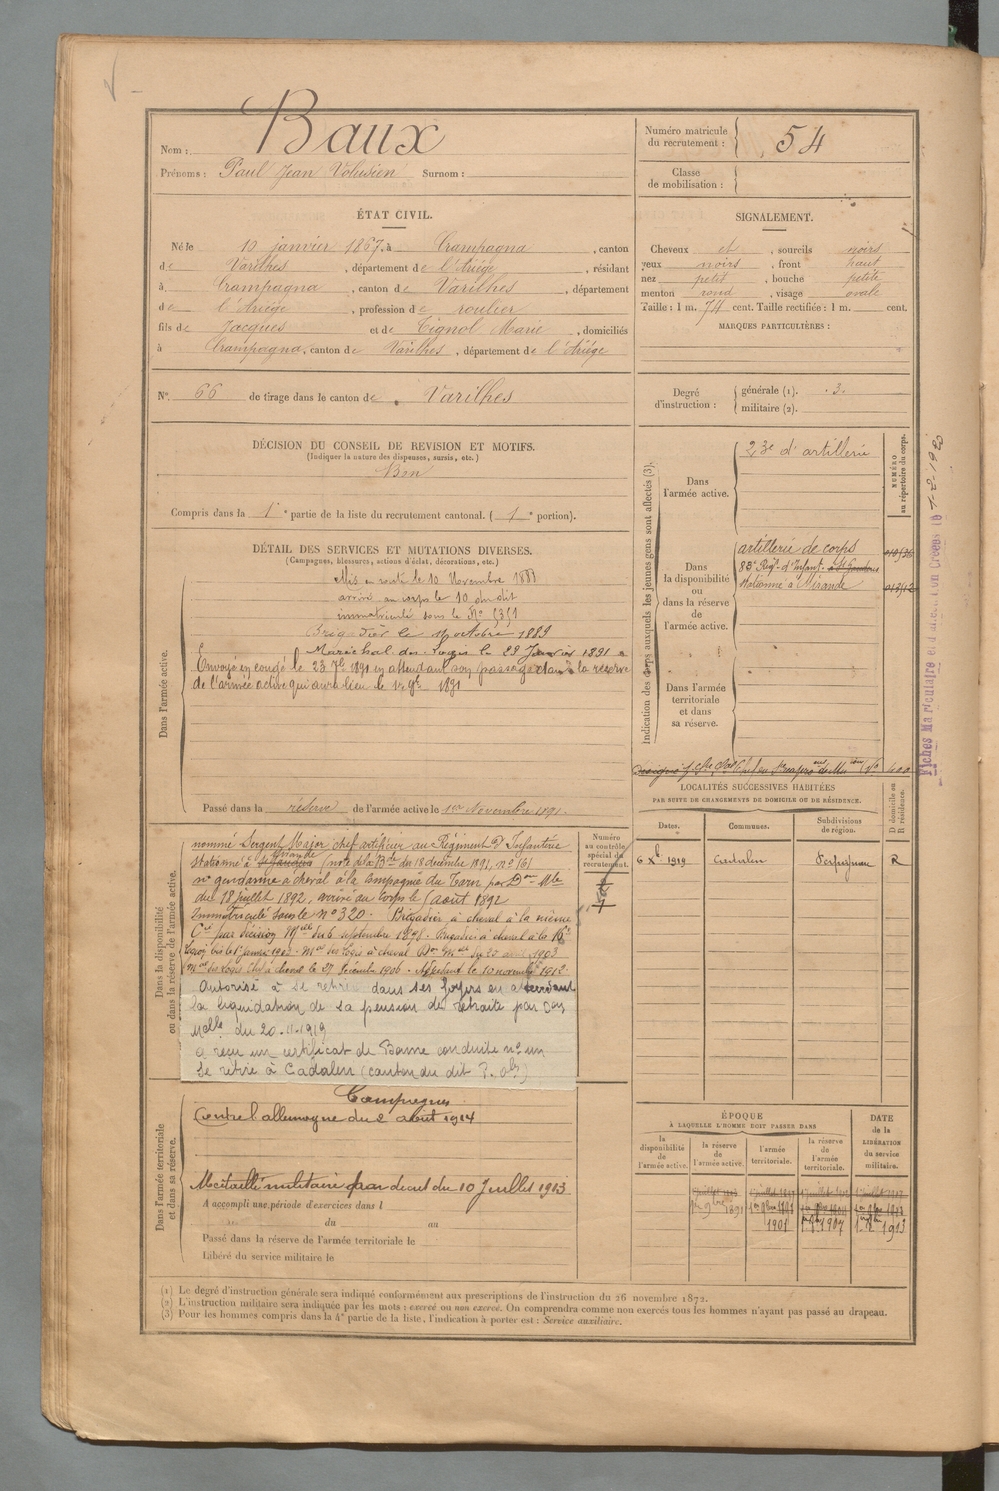 Nom : Baux
Prénoms : Paul Jean Volusien Surnom :
Numéro matricule du recrutement : 54
Classe de mobilisation :
ÉTAT CIVIL.
Né le 10 janvier 1867, à Crampagna, canton
de Varilhes, département de l'Ariége, résidant
à Crampagna, canton de Varilhes, département
de l'Ariége, profession de roulier
fils de Jacques et de Tignol Marie, domiciliés
à Crampagna, canton de Varilhes, département de l'Ariége
SIGNALEMENT.
Cheveux et, sourcils noirs
yeux noirs, front haut
nez petit, bouche petite
menton rond, visage ovale
Taille : 1 m. 74 cent. Taille rectifiée : 1 m. cent.
MARQUES PARTICULIÈRES :
N° 66 de tirage dans le canton de Varilhes
Degré d'instruction : générale (1). 3.
militaire (2).
DÉCISION DU CONSEIL DE REVISION ET MOTIFS.
(Indiquer la nature des dispenses, sursis, etc.)
Bon
Compris dans la 1e partie de la liste du recrutement cantonal. (1e portion).
DÉTAIL DES SERVICES ET MUTATIONS DIVERSES.
(Campagnes, blessures, actions d'éclat, décorations, etc.)
Dans l'armée active.
Mis en route le 10 Novembre 188
arrivé au corps le 10 du dit
immatriculé sous le No
Brigadier le octobre 1889
Maréchal des logis le 29 Janvier 1891
Envoyé en congé le 23 7bre 1891 en attendant son passage dans la réserve
de l'armée active qui aura lieu le 1er 9bre 1891
Passé dans la réserve de l'armée active le 1er Novembre 1891.
Indication des corps auxquels les jeunes gens sont affectés (3).
NUMÉRO au répertoire du corps.
Dans l'armée active.
23e d'artillerie
Dans la disponibilité ou dans la réserve de l'armée active.
artillerie de corps
83e Régt d'Infant. à St Gaudens
stationné à Mirande
Dans l'armée territoriale et dans sa réserve.
Fiches Matriculaire et d'
LOCALITÉS SUCCESSIVES HABITÉES
PAR SUITE DE CHANGEMENTS DE DOMICILE OU DE RÉSIDENCE.
D domicile ou R résidence.
Dates. Communes. Subdivisions de région.
6 Xbre 1919 Cadalen Perpignan R
Dans la disponibilité ou dans la réserve de l'armée active.
Numéro au contrôle spécial du recrutement.
nommé Sergent Major chef artificier au Régiment d'Infanterie
stationné à Mirande (note de la du 18 décembre 1891, no 161
né gendarme à cheval à la Compagnie du Tarn par Don Mlle
du 18 juillet 1892, arrivé au corps le août 1892
Immatriculé sous le no 320. Brigadier à cheval à la même
Cie par décision Mlle du 6 septembre 1898. Brigadier à cheval à la 16e
Légion bis le 1er janvier 1903. Mal des logis à cheval Don Mlle du 23 avril 1903
Mal des logis Chef à cheval le 27 décembre 1906. Adjudant le 10 novembre 1912.
Autorisé à se retirer dans ses foyers en attendant
la liquidation de sa pension de retraite par Don
Mlle du 20-11-1919
a reçu un certificat de Bonne conduite no un
Se retire à Cadalen (canton du dit)
Dans l'armée territoriale et dans sa réserve.
Campagnes
Contre l'allemagne du 2 août 1914
Médaillé militaire par décret du 10 Juillet 1913
A accompli une période d'exercices dans l
du au
Passé dans la réserve de l'armée territoriale le
Libéré du service militaire le
ÉPOQUE
À LAQUELLE L'HOMME DOIT PASSER DANS
DATE de la LIBÉRATION du service militaire.
la disponibilité de l'armée active.
la réserve de l'armée active.
l'armée territoriale.
la réserve de l'armée territoriale.
1er 9bre 1891
1901
1907
1913
(1) Le degré d'instruction générale sera indiqué conformément aux prescriptions de l'instruction du 26 novembre 1872.
(2) L'instruction militaire sera indiquée par les mots : exercé ou non exercé. On comprendra comme non exercés tous les hommes n'ayant pas passé au drapeau.
(3) Pour les hommes compris dans la 4e partie de la liste, l'indication à porter est : Service auxiliaire.